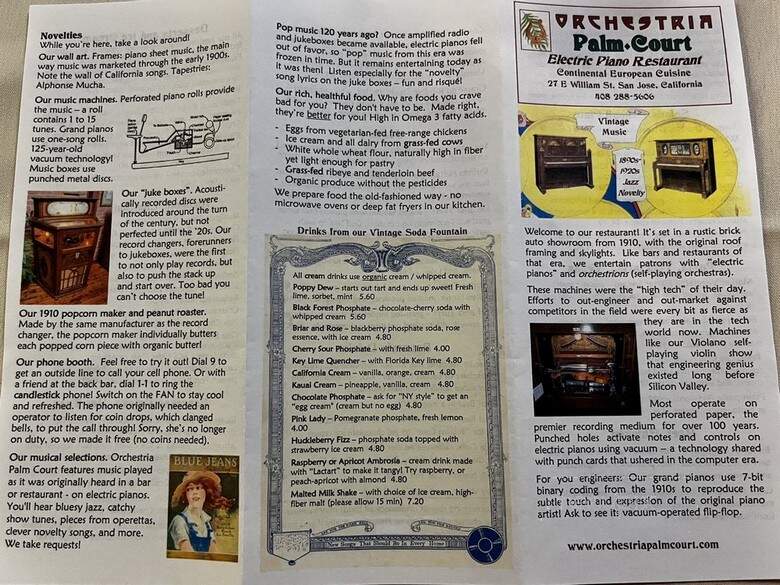 Novelties
While you're here, take a look around!
Our wall art. Frames: piano sheet music, the main
way music was marketed through the early 1900s.
Note the wall of California songs. Tapestries:
Alphonse Mucha.
Our music machines. Perforated piano rolls provide
the music – a roll
contains 1 to 15
tunes. Grand pianos
use one-song rolls.
125-year-old
vacuum technology!
Music boxes use
punched metal discs.
Our "juke boxes". Acousti-
cally recorded discs were
introduced around the turn
of the century, but not
perfected until the '20s. Our
record changers, forerunners
to jukeboxes, were the first
to not only play records, but
also to push the stack up
and start over. Too bad you
can't choose the tune!
Our 1910 popcorn maker and peanut roaster.
Made by the same manufacturer as the record
changer, the popcorn maker individually butters
each popped corn piece with organic butter!
Our phone booth. Feel free to try it out! Dial 9 to
get an outside line to call your cell phone. Or with
a friend at the back bar, dial 1-1 to ring the
candlestick phone! Switch on the FAN to stay cool
and refreshed. The phone originally needed an
operator to listen for coin drops, which clanged
bells, to put the call through! Sorry, she's no longer
on duty, so we made it free (no coins needed).
Our musical selections. Orchestria
Palm Court features music played
as it was originally heard in a bar
or restaurant - on electric pianos.
You'll hear bluesy jazz, catchy
show tunes, pieces from operettas,
clever novelty songs, and more.
We take requests!
BLUE JEANS
Pop music 120 years ago? Once amplified radio
and jukeboxes became available, electric pianos fell
out of favor, so "pop" music from this era was
frozen in time. But it remains entertaining today as
it was then! Listen especially for the "novelty"
song lyrics on the juke boxes – fun and risqué!
Our rich, healthful food. Why are foods you crave
bad for you? They don't have to be. Made right,
they're better for you! High in Omega 3 fatty acids.
- Eggs from vegetarian-fed free-range chickens
- Ice cream and all dairy from grass-fed cows
- White whole wheat flour, naturally high in fiber
yet light enough for pastry
- Grass-fed ribeye and tenderloin beef
- Organic produce without the pesticides
We prepare food the old-fashioned way - no
microwave ovens or deep fat fryers in our kitchen.
Drinks from our Vintage Soda Fountain
All cream drinks use organic cream / whipped cream.
Poppy Dew – starts out tart and ends up sweet! Fresh
lime, sorbet, mint 5.60
Black Forest Phosphate – chocolate-cherry soda with
whipped cream 5.60
Briar and Rose – blackberry phosphate soda, rose
essence, with ice cream 4.80
Cherry Sour Phosphate – with fresh lime 4.00
Key Lime Quencher – with Florida Key lime 4.80
California Cream – vanilla, orange, cream 4.80
Kauai Cream – pineapple, vanilla, cream 4.80
Chocolate Phosphate – ask for "NY style" to get an
"egg cream" (cream but no egg) 4.80
Pink Lady – Pomegranate phosphate, fresh lemon
4.00
Huckleberry Fizz – phosphate soda topped with
strawberry ice cream 4.80
Raspberry or Apricot Ambrosia – cream drink made
with "Lactart" to make it tangy! Try raspberry, or
peach-apricot with almond 4.80
Malted Milk Shake – with choice of ice cream, high-
fiber malt (please allow 15 min) 7.20
New Songs That Should Be In Every Home
ORCHESTRIA
Palm·Court
Electric Piano Restaurant
Continental European Cuisine
27 E William St. San Jose, California
408 288-5606
Vintage
Music
1890s-
1920s
Jazz
Novelty
Welcome to our restaurant! It's set in a rustic brick
auto showroom from 1910, with the original roof
framing and skylights. Like bars and restaurants of
that era, we entertain patrons with "electric
pianos" and orchestrions (self-playing orchestras).
These machines were the "high tech" of their day.
Efforts to out-engineer and out-market against
competitors in the field were every bit as fierce as
they are in the tech
world now. Machines
like our Violano self-
playing violin show
that engineering genius
existed long before
Silicon Valley.
Most operate on
perforated paper, the
premier recording medium for over 100 years.
Punched holes activate notes and controls on
electric pianos using vacuum – a technology shared
with punch cards that ushered in the computer era.
For you engineers: Our grand pianos use 7-bit
binary coding from the 1910s to reproduce the
subtle touch and expression of the original piano
artist! Ask to see its vacuum-operated flip-flop.
www.orchestriapalmcourt.com